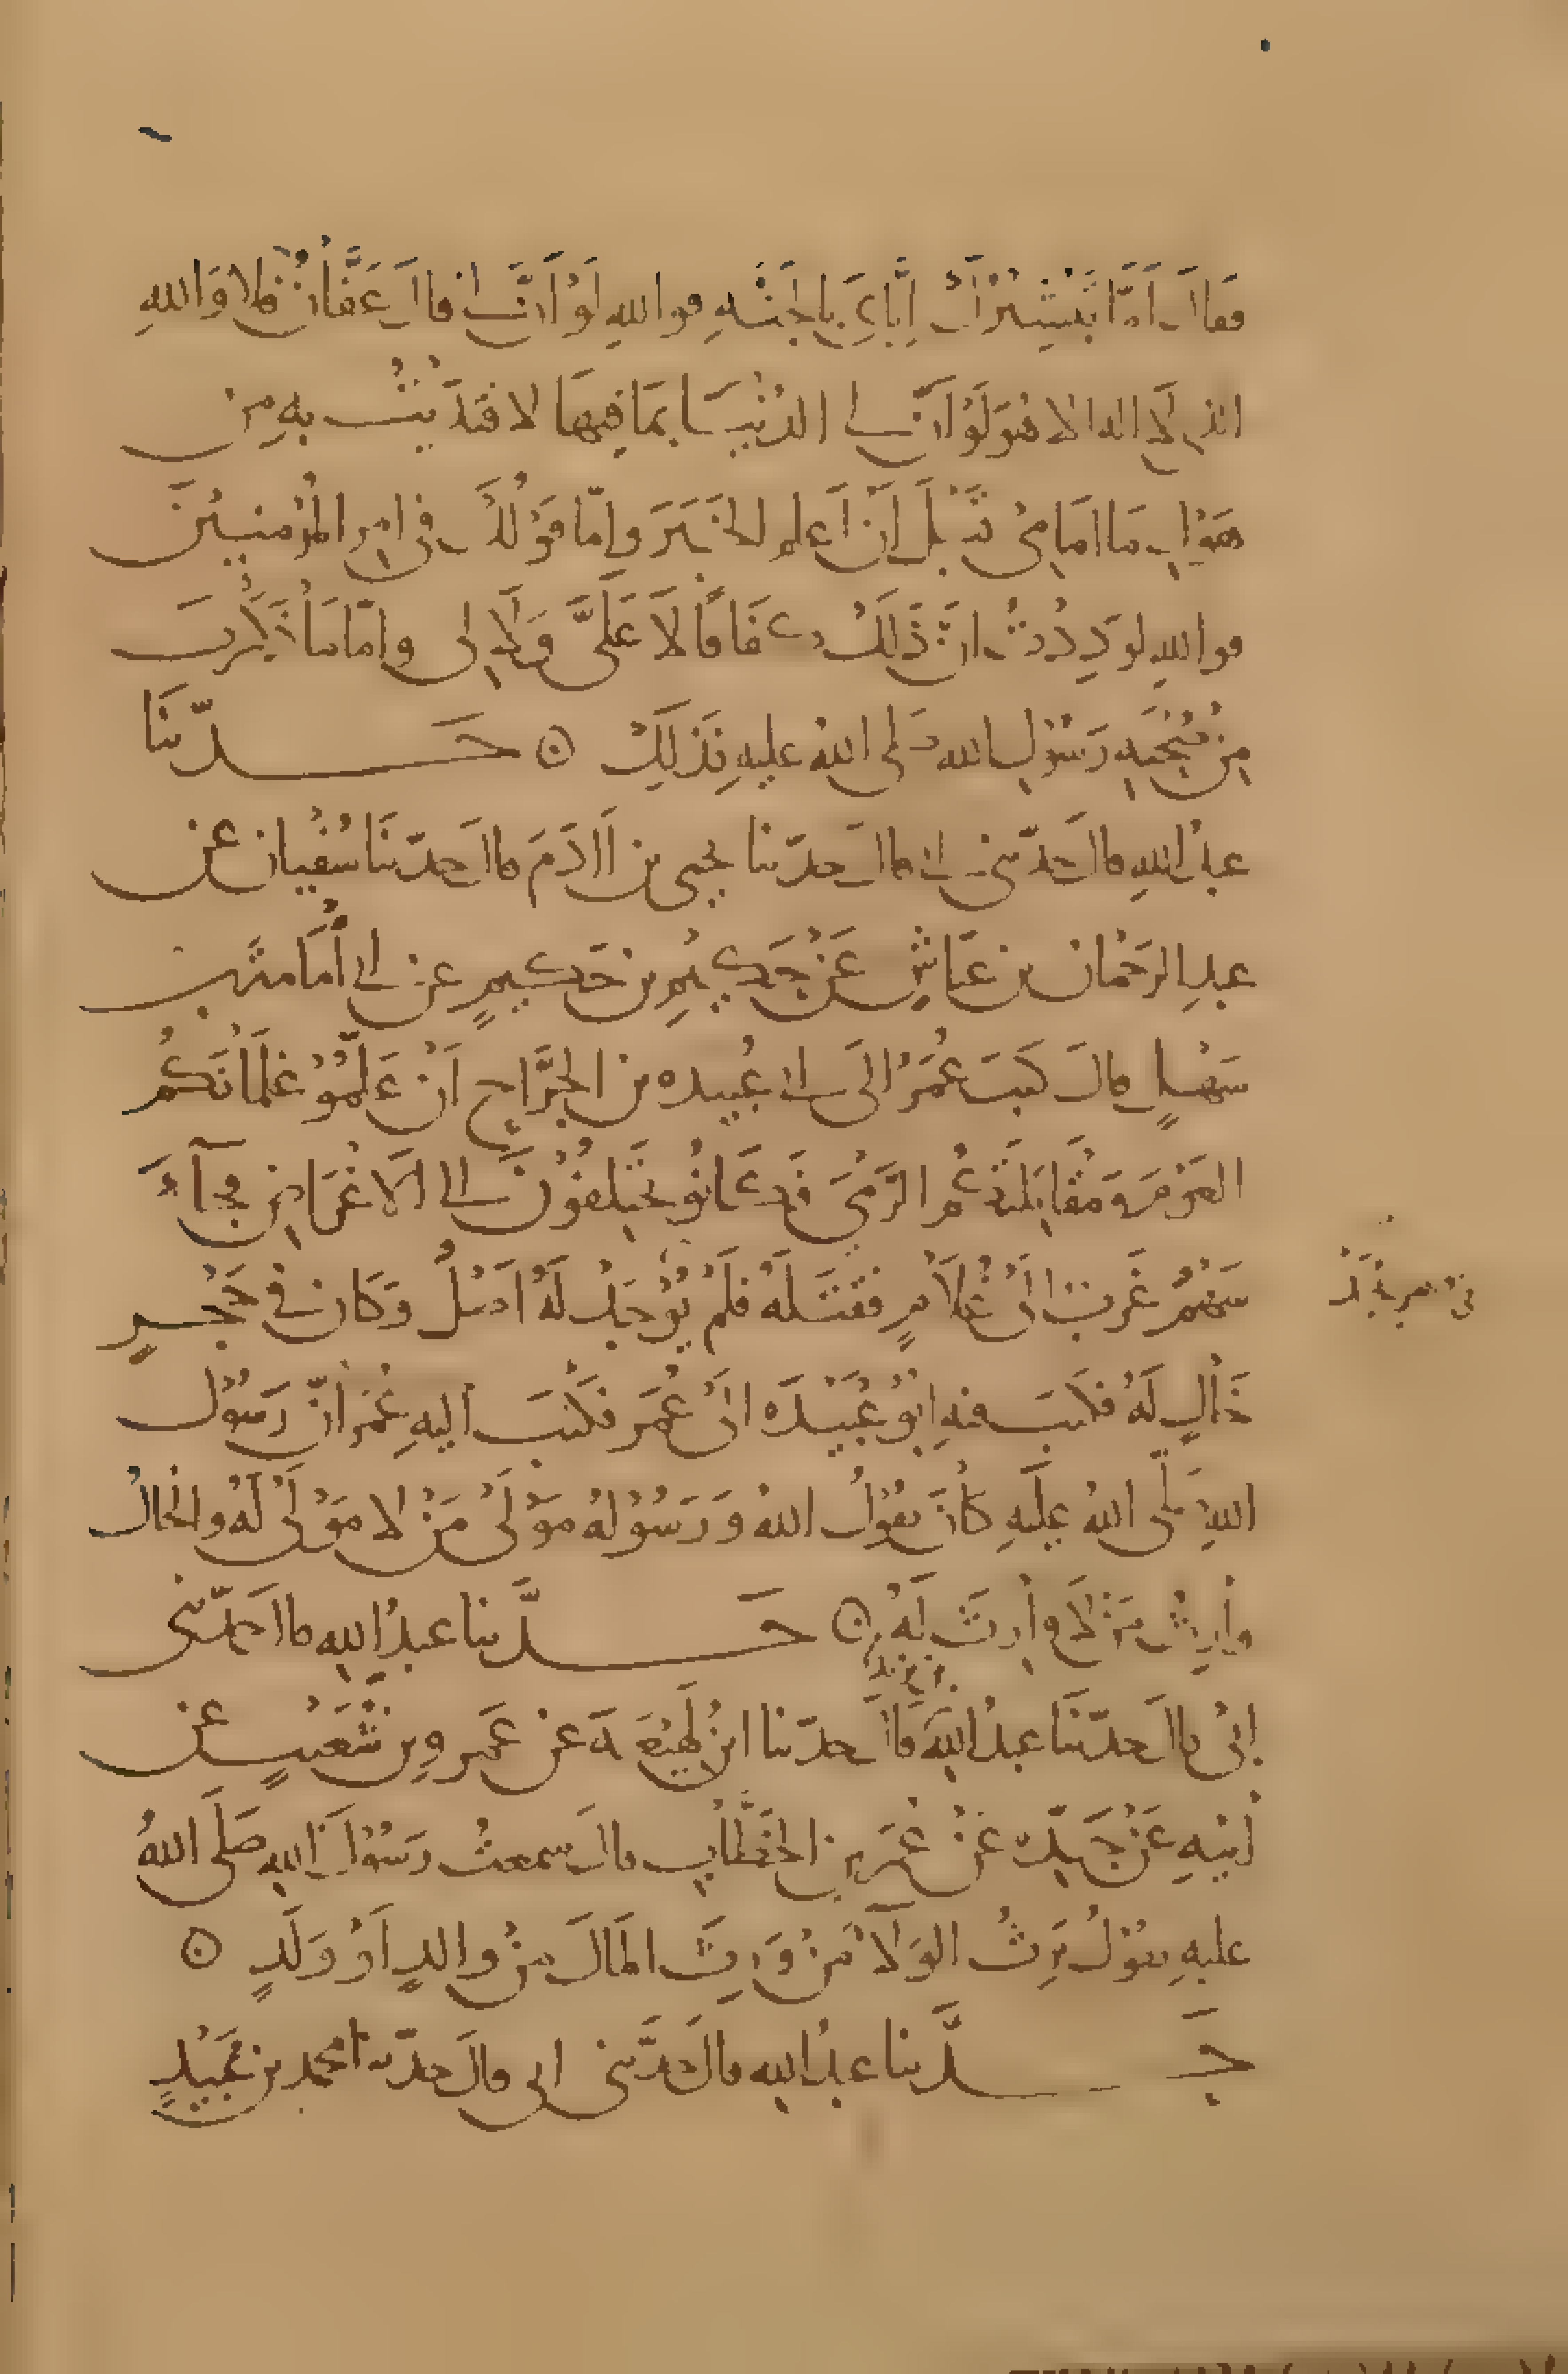 فقال اَمَّا تَبْشِيْرُكَ اِيَّايَ بالجَنَّهِ فوالله لَوْ اَنَّ لى قال عَفَّانُ فلا وَالله
الذى لا اله الا هُوَ لَوْ اَنَّ لى الدُنْيَا بمَا فيهَا لافتَدَيْتُ بهِ مِن
هَوْلِ مَا امَامِى قَبْلَ اَنْ اَعلم الخَبَرَ وامّا قَوْلُكَ فى امر المُؤمنيْنَ
فوالله لوَدِدْتُ انّ ذَلَكَ كَفَافًا لَا عَلَىَّ وَلَا لى وامّا مَا ذَكَرْتَ
مِنْ صُحْبَهِ رَسُوْلِ الله صَلى اللهُ عليهِ فَذَلِكَ ۞ حَدّثنَا
عبدُ اللهِ قال حَدّثنى ابى قال حدّثنا يحيى بن اَادَمَ قال حَدّثنَا سُفْيَان عن
عبدِ الرحْمَان بن عَيَّاشٍ عَنْ حَكِيْمِ بن حَكيمٍ عن ابى اُمَامَة بن
سَهْلٍ قالَ كَتَبَ عُمَرُ الَى ابى عُبيده بن الجَرَّاح اَنْ عَلِّمُوْ غِلمَانَكُمُ
العَوْمَ وَمُقَاتِلَتَكُمُ الرَّمْىَ فَكَانُو يَخْتَلِفُوْنَ الى الاَغْرَاضِ فجآءَ
سَهْمٌ غَرْبٌ الَىْ غُلَامٍ فقتَلَهُ فلَمْ يُوْجَدْ لَهُ اَصْلٌ وَكَان فىْ حَجْرِ
خَالٍ لَهُ فكتبَ فيهِ ابُوْ عُبَيْدَه الىْ عُمَرَ فكَتبَ اليهِ عُمَرُ انّ رَسُوْلَ
اللهِ صَلّى اللهُ عليَهِ كانَ يقُوْلُ اللهُ وَرَسُوْلُهُ مَوْلَىْ مَنْ لا مَوْلَىْ لَهُ والخَالُ
وارِثُ مَنْ لَا وارِثَ لَهُ ۞ حَدَّثنا عبدُ الله قال حدّثنى
ابىْ قال حدّثنَا عبدُ الله بن يزيد قالَ حدّثنا ابنُ لَهِيْعَةَ عَنْ عَمرِو بنِ شُعَيبٍ عن
اَبيْهِ عَنْ جَدِّه عَنْ عُمَرَ بن الخَطَّابِ قال سمعتُ رَسُوْلَ الله صَلَى اللهُ
عليهِ يقوْلُ يَرِثُ الوَلَاَ مَنْ وَرِثَ المَالَ مِنْ والدٍ اَوْ وَلَدٍ ۞
حَدَّثنا عبدُ الله قالَ حَدَّثنى ابى قالَ حدّثنا محمد بن عُبَيْدٍ